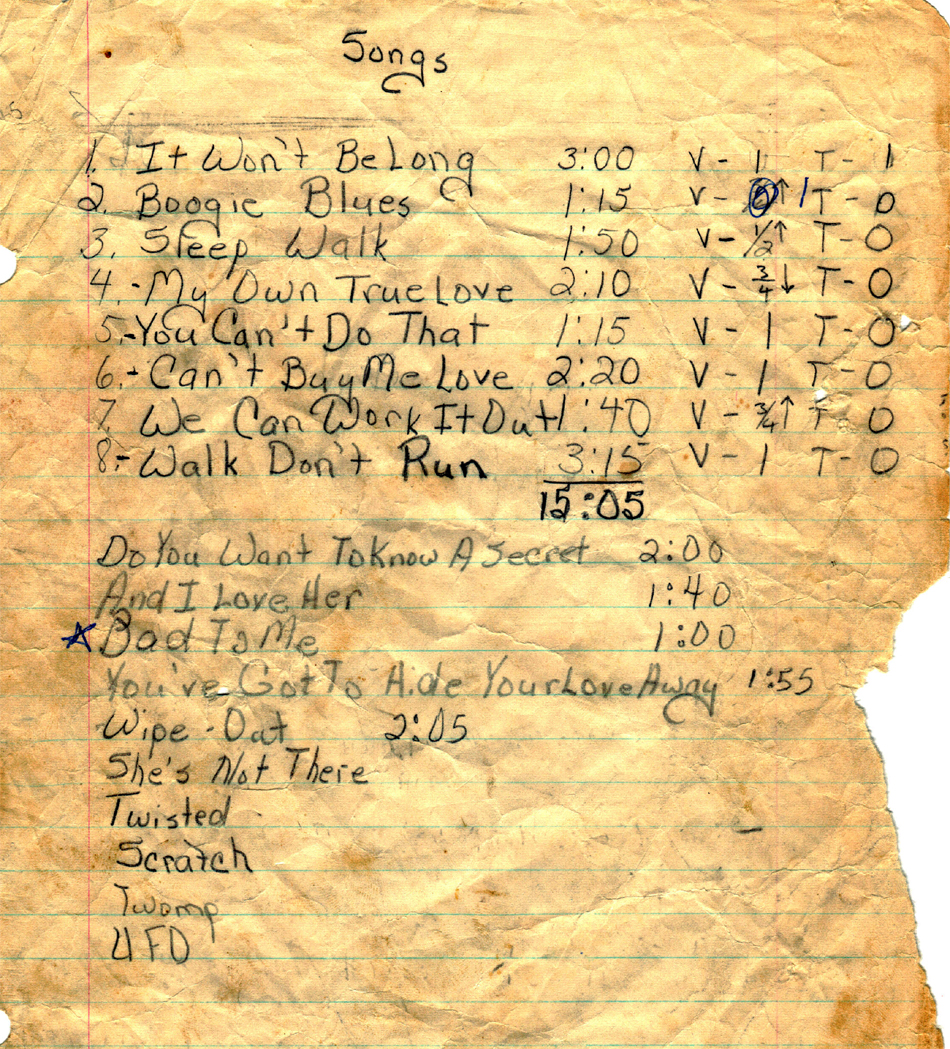 Songs
1. It Won't Be Long 3:00 V - 1 T - 1
2. Boogie Blues 1:15 V - ↑ 1 T - 0
3. Sleep Walk 1:50 V - 1/2↑ T - 0
4.- My Own True Love 2:10 V - 3/4↓ T - 0
5.- You Can't Do That 1:15 V - 1 T - 0
6.- Can't Buy Me Love 2:20 V - 1 T - 0
7. We Can Work It Out 1:40 V - 3/4↑ T - 0
8.- Walk Don't Run 3:15 V - 1 T - 0
15:05
Do You Want To Know A Secret 2:00
And I Love Her 1:40
☆ Bad To Me 1:00
You've Got To Hide Your Love Away 1:55
Wipe-Out 2:05
She's Not There
Twisted
Scratch
Twomp
UFO